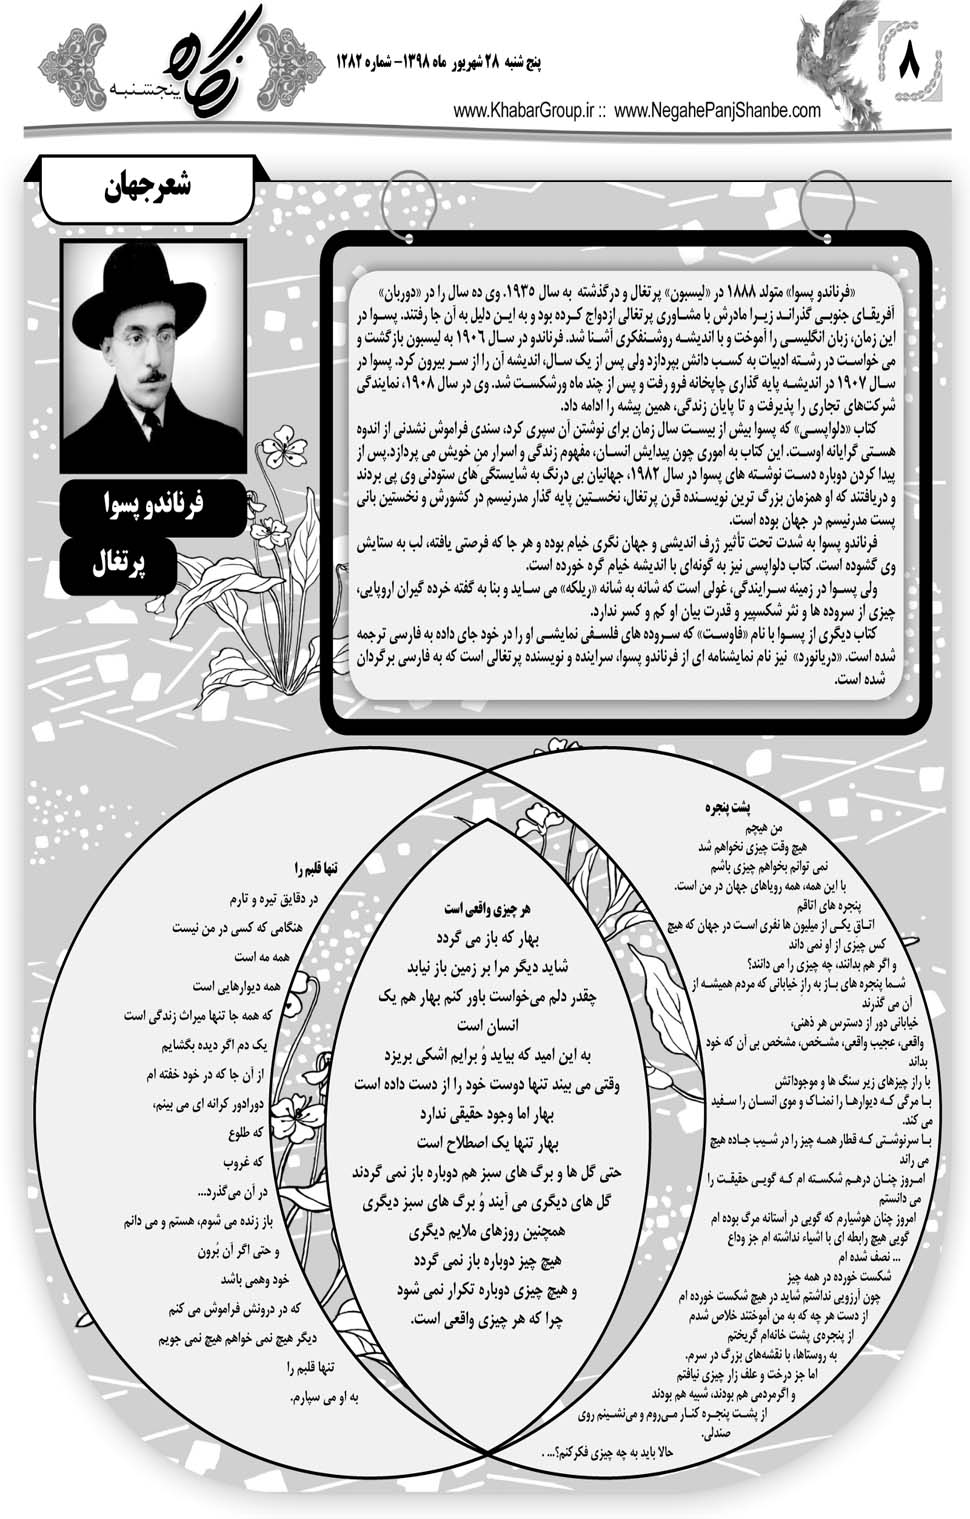 ۸
پنج شنبه ۲۸ شهریور ماه ۱۳۹۸- شماره ۱۲۸۲
نگاه
پنجشنبه
www.KhabarGroup.ir :: www.NegahePanjShanbe.com
شعرجهان
فرناندو پسوا
پرتغال
«فرناندو پسوا» متولد ۱۸۸۸ در «لیسبون» پرتغال و درگذشته به سال ۱۹۳۵. وی ده سال را در «دوربان»
آفریقای جنوبی گذراند زیرا مادرش با مشاوری پرتغالی ازدواج کرده بود و به این دلیل به آن جا رفتند. پسوا در
این زمان، زبان انگلیسی را آموخت و با اندیشه روشنفکری آشنا شد. فرناندو در سال ۱۹۰۶ به لیسبون بازگشت و
می خواست در رشته ادبیات به کسب دانش بپردازد ولی پس از یک سال، اندیشه آن را از سر بیرون کرد. پسوا در
سال ۱۹۰۷ در اندیشه پایه گذاری چاپخانه فرو رفت و پس از چند ماه ورشکست شد. وی در سال ۱۹۰۸، نمایندگی
شرکت‌های تجاری را پذیرفت و تا پایان زندگی، همین پیشه را ادامه داد.
کتاب «دلواپسی» که پسوا بیش از بیست سال زمان برای نوشتن آن سپری کرد، سندی فراموش نشدنی از اندوه
هستی گرایانه اوست. این کتاب به اموری چون پیدایش انسان، مفهوم زندگی و اسرار من خویش می پردازد.پس از
پیدا کردن دوباره دست نوشته های پسوا در سال ۱۹۸۲، جهانیان بی درنگ به شایستگی های ستودنی وی پی بردند
و دریافتند که او همزمان بزرگ ترین نویسنده قرن پرتغال، نخستین پایه گذار مدرنیسم در کشورش و نخستین بانی
پست مدرنیسم در جهان بوده است.
فرناندو پسوا به شدت تحت تأثیر ژرف اندیشی و جهان نگری خیام بوده و هر جا که فرصتی یافته، لب به ستایش
وی گشوده است. کتاب دلواپسی نیز به گونه‌ای با اندیشه خیام گره خورده است.
ولی پسوا در زمینه سرایندگی، غولی است که شانه به شانه «ریلکه» می ساید و بنا به گفته خرده گیران اروپایی،
چیزی از سروده ها و نثر شکسپیر و قدرت بیان او کم و کسر ندارد.
کتاب دیگری از پسوا با نام «فاوست» که سروده های فلسفی نمایشی او را در خود جای داده به فارسی ترجمه
شده است. «دریانورد» نیز نام نمایشنامه ای از فرناندو پسوا، سراینده و نویسنده پرتغالی است که به فارسی برگردان
شده است.
پشت پنجره
من هیچم
هیچ وقت چیزی نخواهم شد
نمی توانم بخواهم چیزی باشم
با این همه، همه رویاهای جهان در من است.
پنجره های اتاقم
اتاق یکی از میلیون ها نفری است در جهان که هیچ
کس چیزی از او نمی داند
و اگر هم بدانند، چه چیزی را می دانند؟
شما پنجره های باز به راز خیابانی که مردم همیشه از
آن می گذرند
خیابانی دور از دسترس هر ذهنی،
واقعی، عجیب واقعی، مشخص، مشخص بی آن که خود
بداند
با راز چیزهای زیر سنگ ها و موجوداتش
با مرگی که دیوارها را نمناک و موی انسان را سفید
می کند.
با سرنوشتی که قطار همه چیز را در شیب جاده هیچ
می راند
امروز چنان درهم شکسته ام که گویی حقیقت را
می دانستم
امروز چنان هوشیارم که گویی در آستانه مرگ بوده ام
گویی هیچ رابطه ای با اشیاء نداشته ام جز وداع
... نصف شده ام
شکست خورده در همه چیز
چون آرزویی نداشتم شاید در هیچ شکست خورده ام
از دست هر چه که به من آموختند خلاص شدم
از پنجره‌ی پشت خانه‌ام گریختم
به روستاها، با نقشه‌های بزرگ در سرم.
اما جز درخت و علف زار چیزی نیافتم
و اگرمردمی هم بودند، شبیه هم بودند
از پشت پنجره کنار می‌روم و می‌نشینم روی
صندلی.
حالا باید به چه چیزی فکرکنم؟... .
هر چیزی واقعی است
بهار که باز می گردد
شاید دیگر مرا بر زمین باز نیابد
چقدر دلم می‌خواست باور کنم بهار هم یک
انسان است
به این امید که بیاید وُ برایم اشکی بریزد
وقتی می بیند تنها دوست خود را از دست داده است
بهار اما وجود حقیقی ندارد
بهار تنها یک اصطلاح است
حتی گل ها و برگ های سبز هم دوباره باز نمی گردند
گل های دیگری می آیند وُ برگ های سبز دیگری
همچنین روزهای ملایم دیگری
هیچ چیز دوباره باز نمی گردد
و هیچ چیزی دوباره تکرار نمی شود
چرا که هر چیزی واقعی است.
تنها قلبم را
در دقایق تیره و تارم
هنگامی که کسی در من نیست
همه مه است
همه دیوارهایی است
که همه جا تنها میراث زندگی است
یک دم اگر دیده بگشایم
از آن جا که در خود خفته ام
دورادور کرانه ای می بینم،
که طلوع
که غروب
در آن می‌گذرد...
باز زنده می شوم، هستم و می دانم
و حتی اگر آن بُرون
خود وهمی باشد
که در درونش فراموش می کنم
دیگر هیچ نمی خواهم هیچ نمی جویم
تنها قلبم را
به او می سپارم.